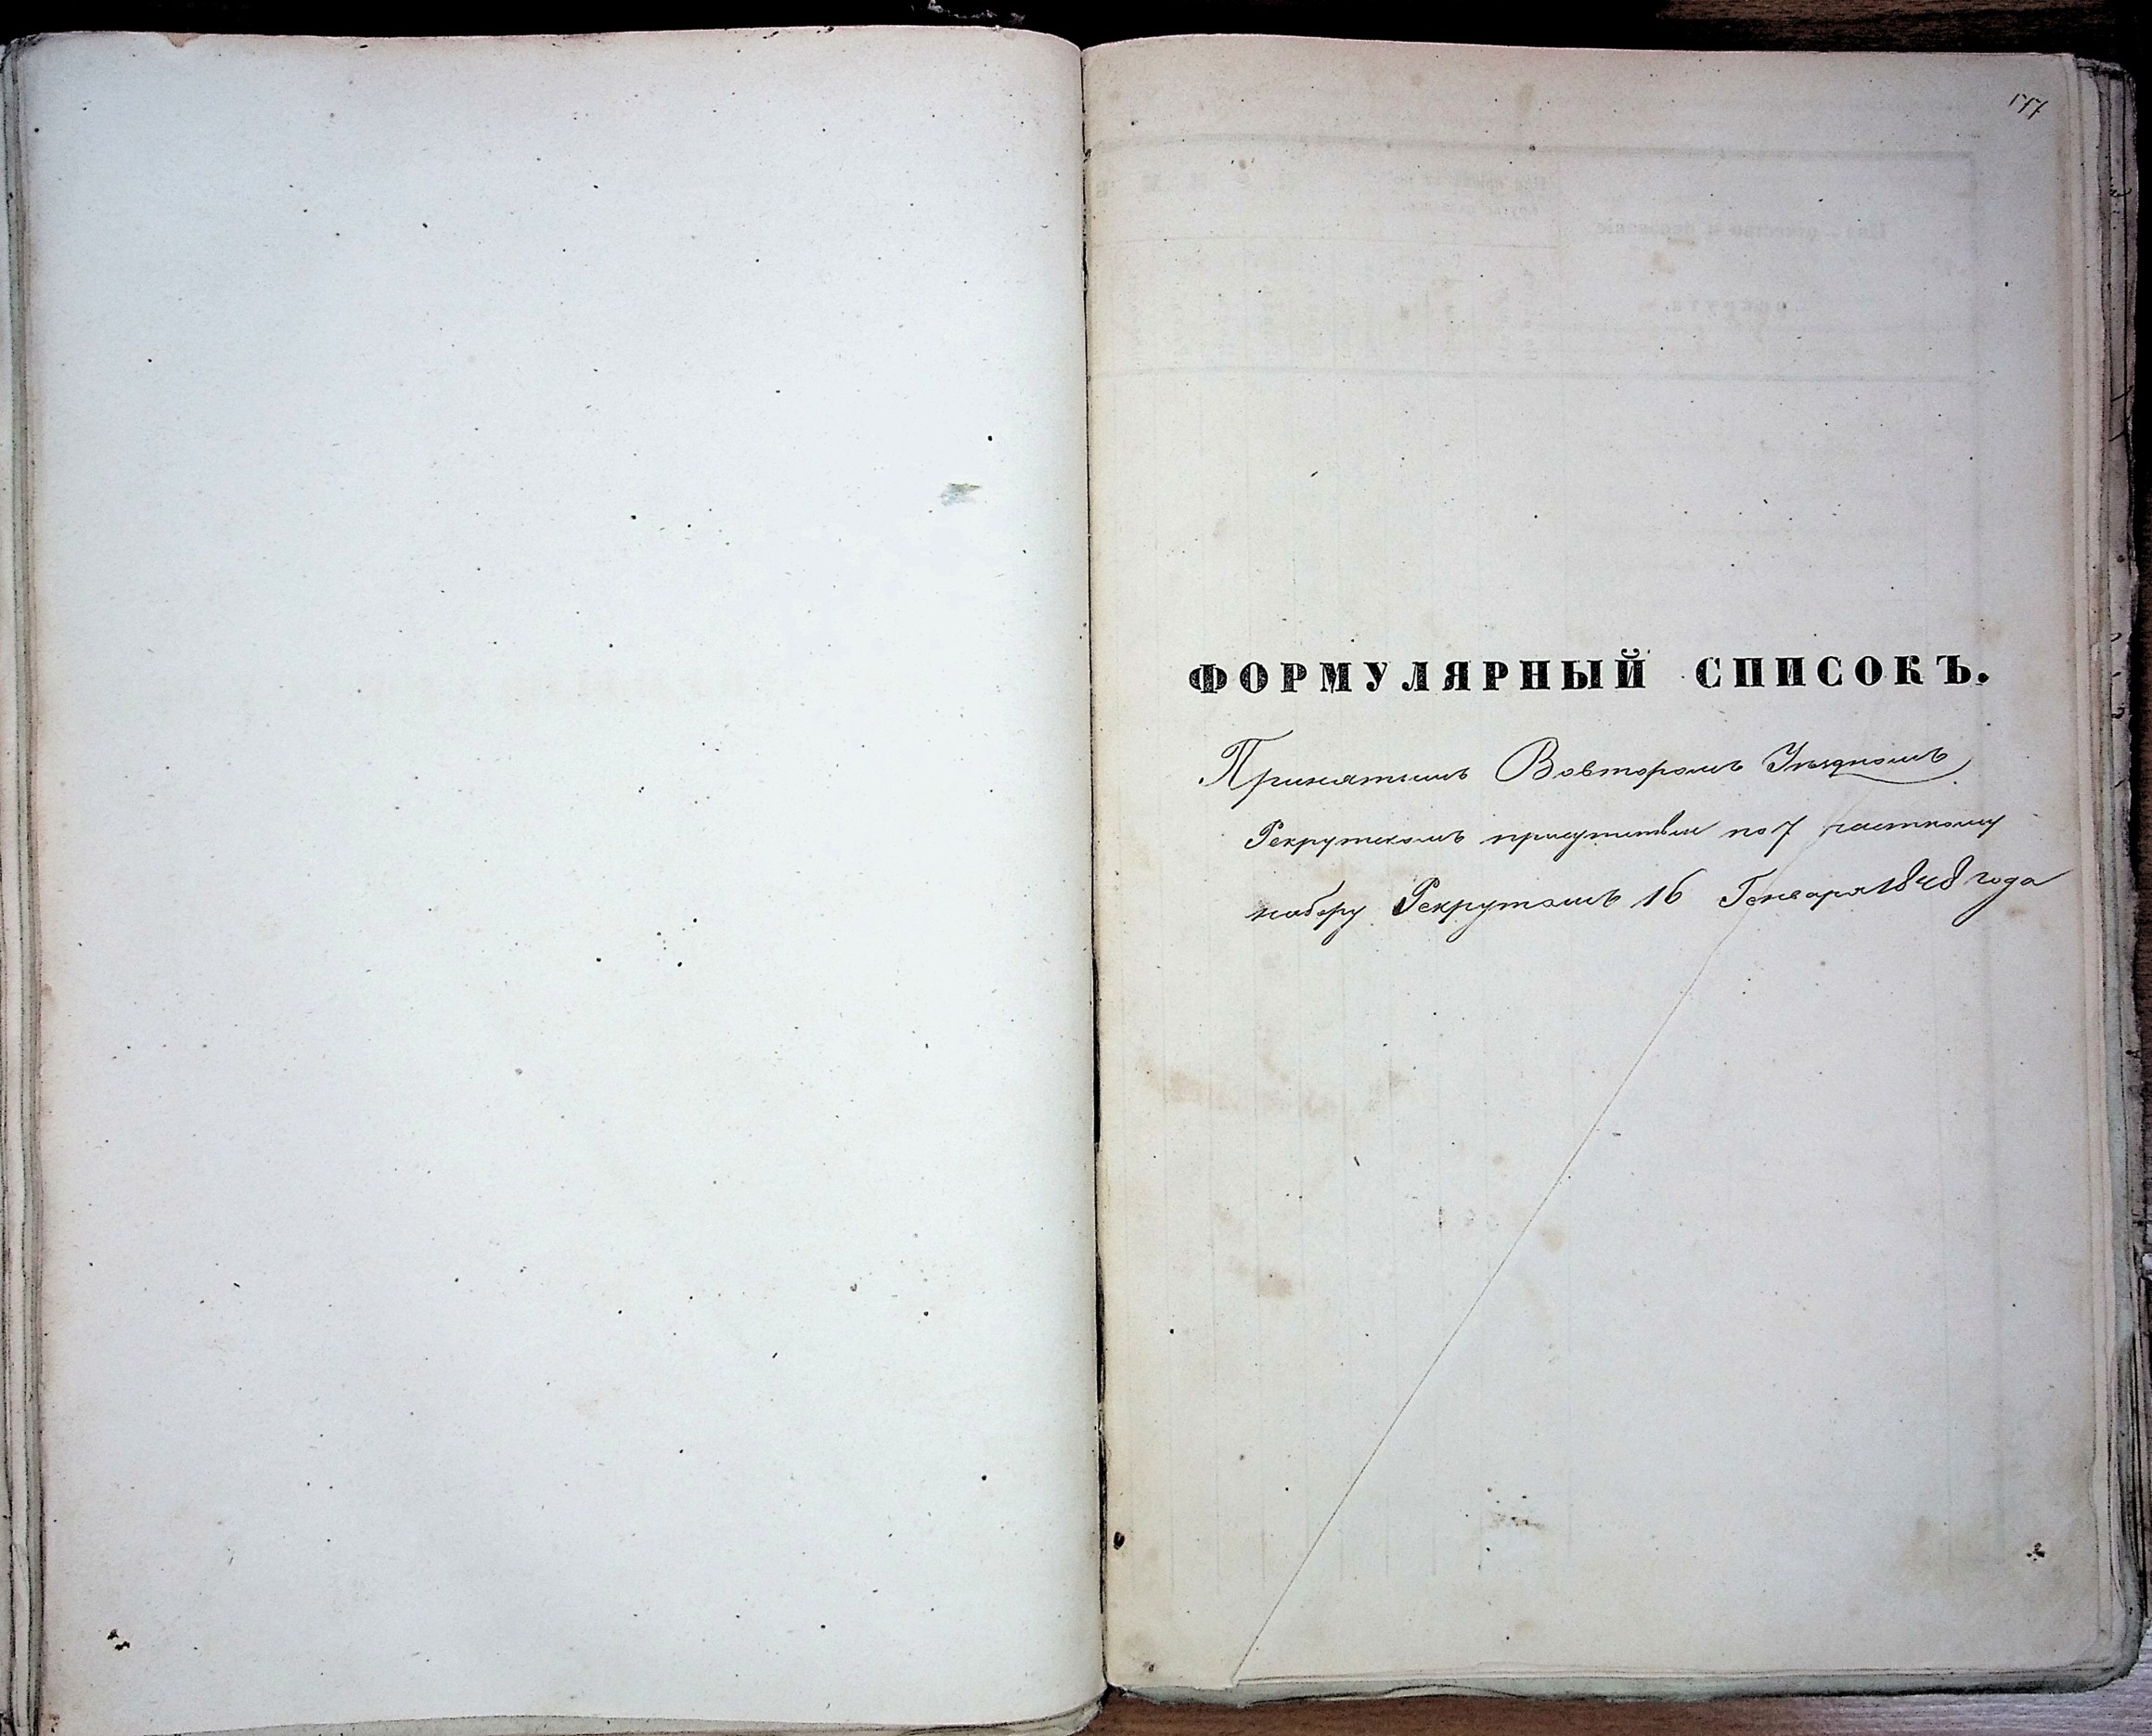 177
ФОРМУЛЯРНЫЙ СПИСОКЪ.
Принятымъ Вовторомъ Уѣздномъ
Рекрутскомъ присутствіи по 7 частному
набору Рекрутамъ 16 Генваря 1848 года